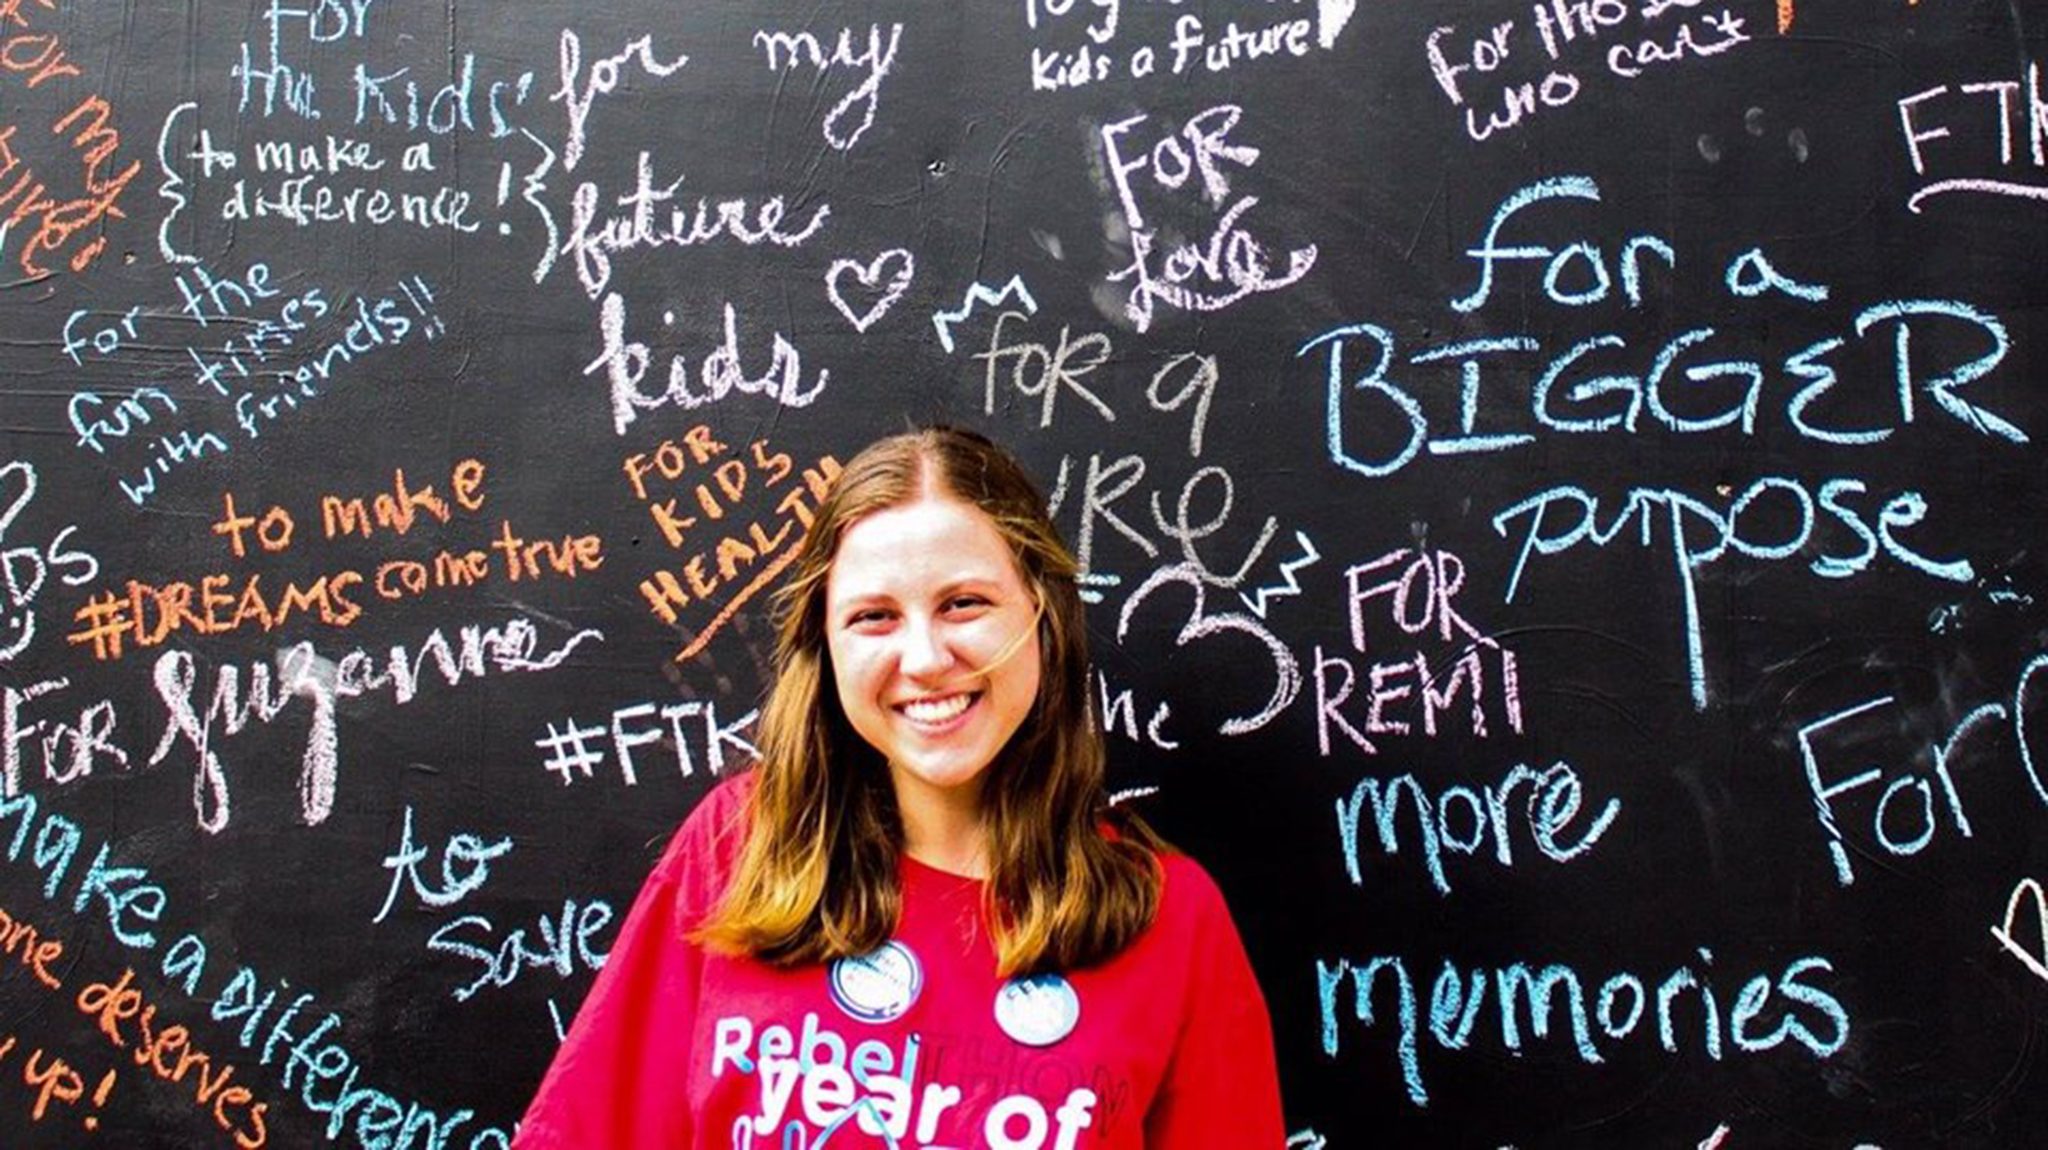 For
the Kids'
to make a
difference!
for my
future
kids
kids a future
For those
who can't
FOR
love
for a
BIGGER
purpose
for the
fun times
with friends!!
for a
to make
#DREAMS come true
FOR
KIDS
HEALTH
FOR suzanne
#FTK
FOR
REMI
more
memories
For
to
save
make a Difference
one deserves
up!
Rebel THON
year of